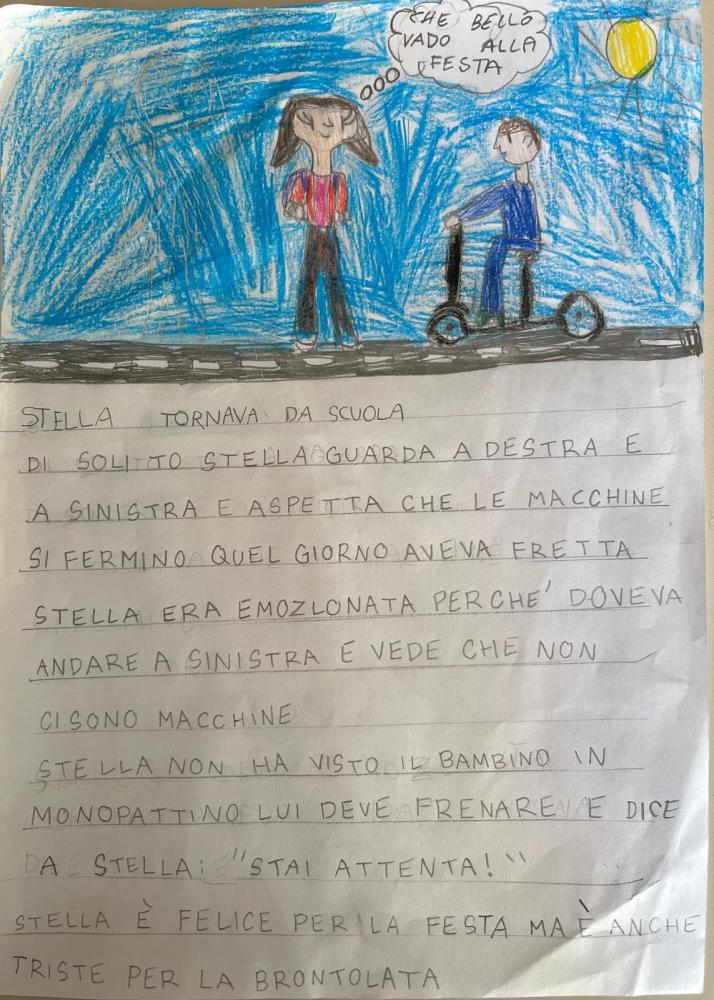 CHE BELLO
VADO ALLA
FESTA
STELLA TORNAVA DA SCUOLA
DI SOLITO STELLA GUARDA A DESTRA E
A SINISTRA E ASPETTA CHE LE MACCHINE
SI FERMINO QUEL GIORNO AVEVA FRETTA
STELLA ERA EMOZIONATA PERCHE' DOVEVA
ANDARE A SINISTRA E VEDE CHE NON
CI SONO MACCHINE
STELLA NON HA VISTO IL BAMBINO IN
MONOPATTINO LUI DEVE FRENARE E DICE
A STELLA: "STAI ATTENTA!"
STELLA È FELICE PER LA FESTA MA È ANCHE
TRISTE PER LA BRONTOLATA